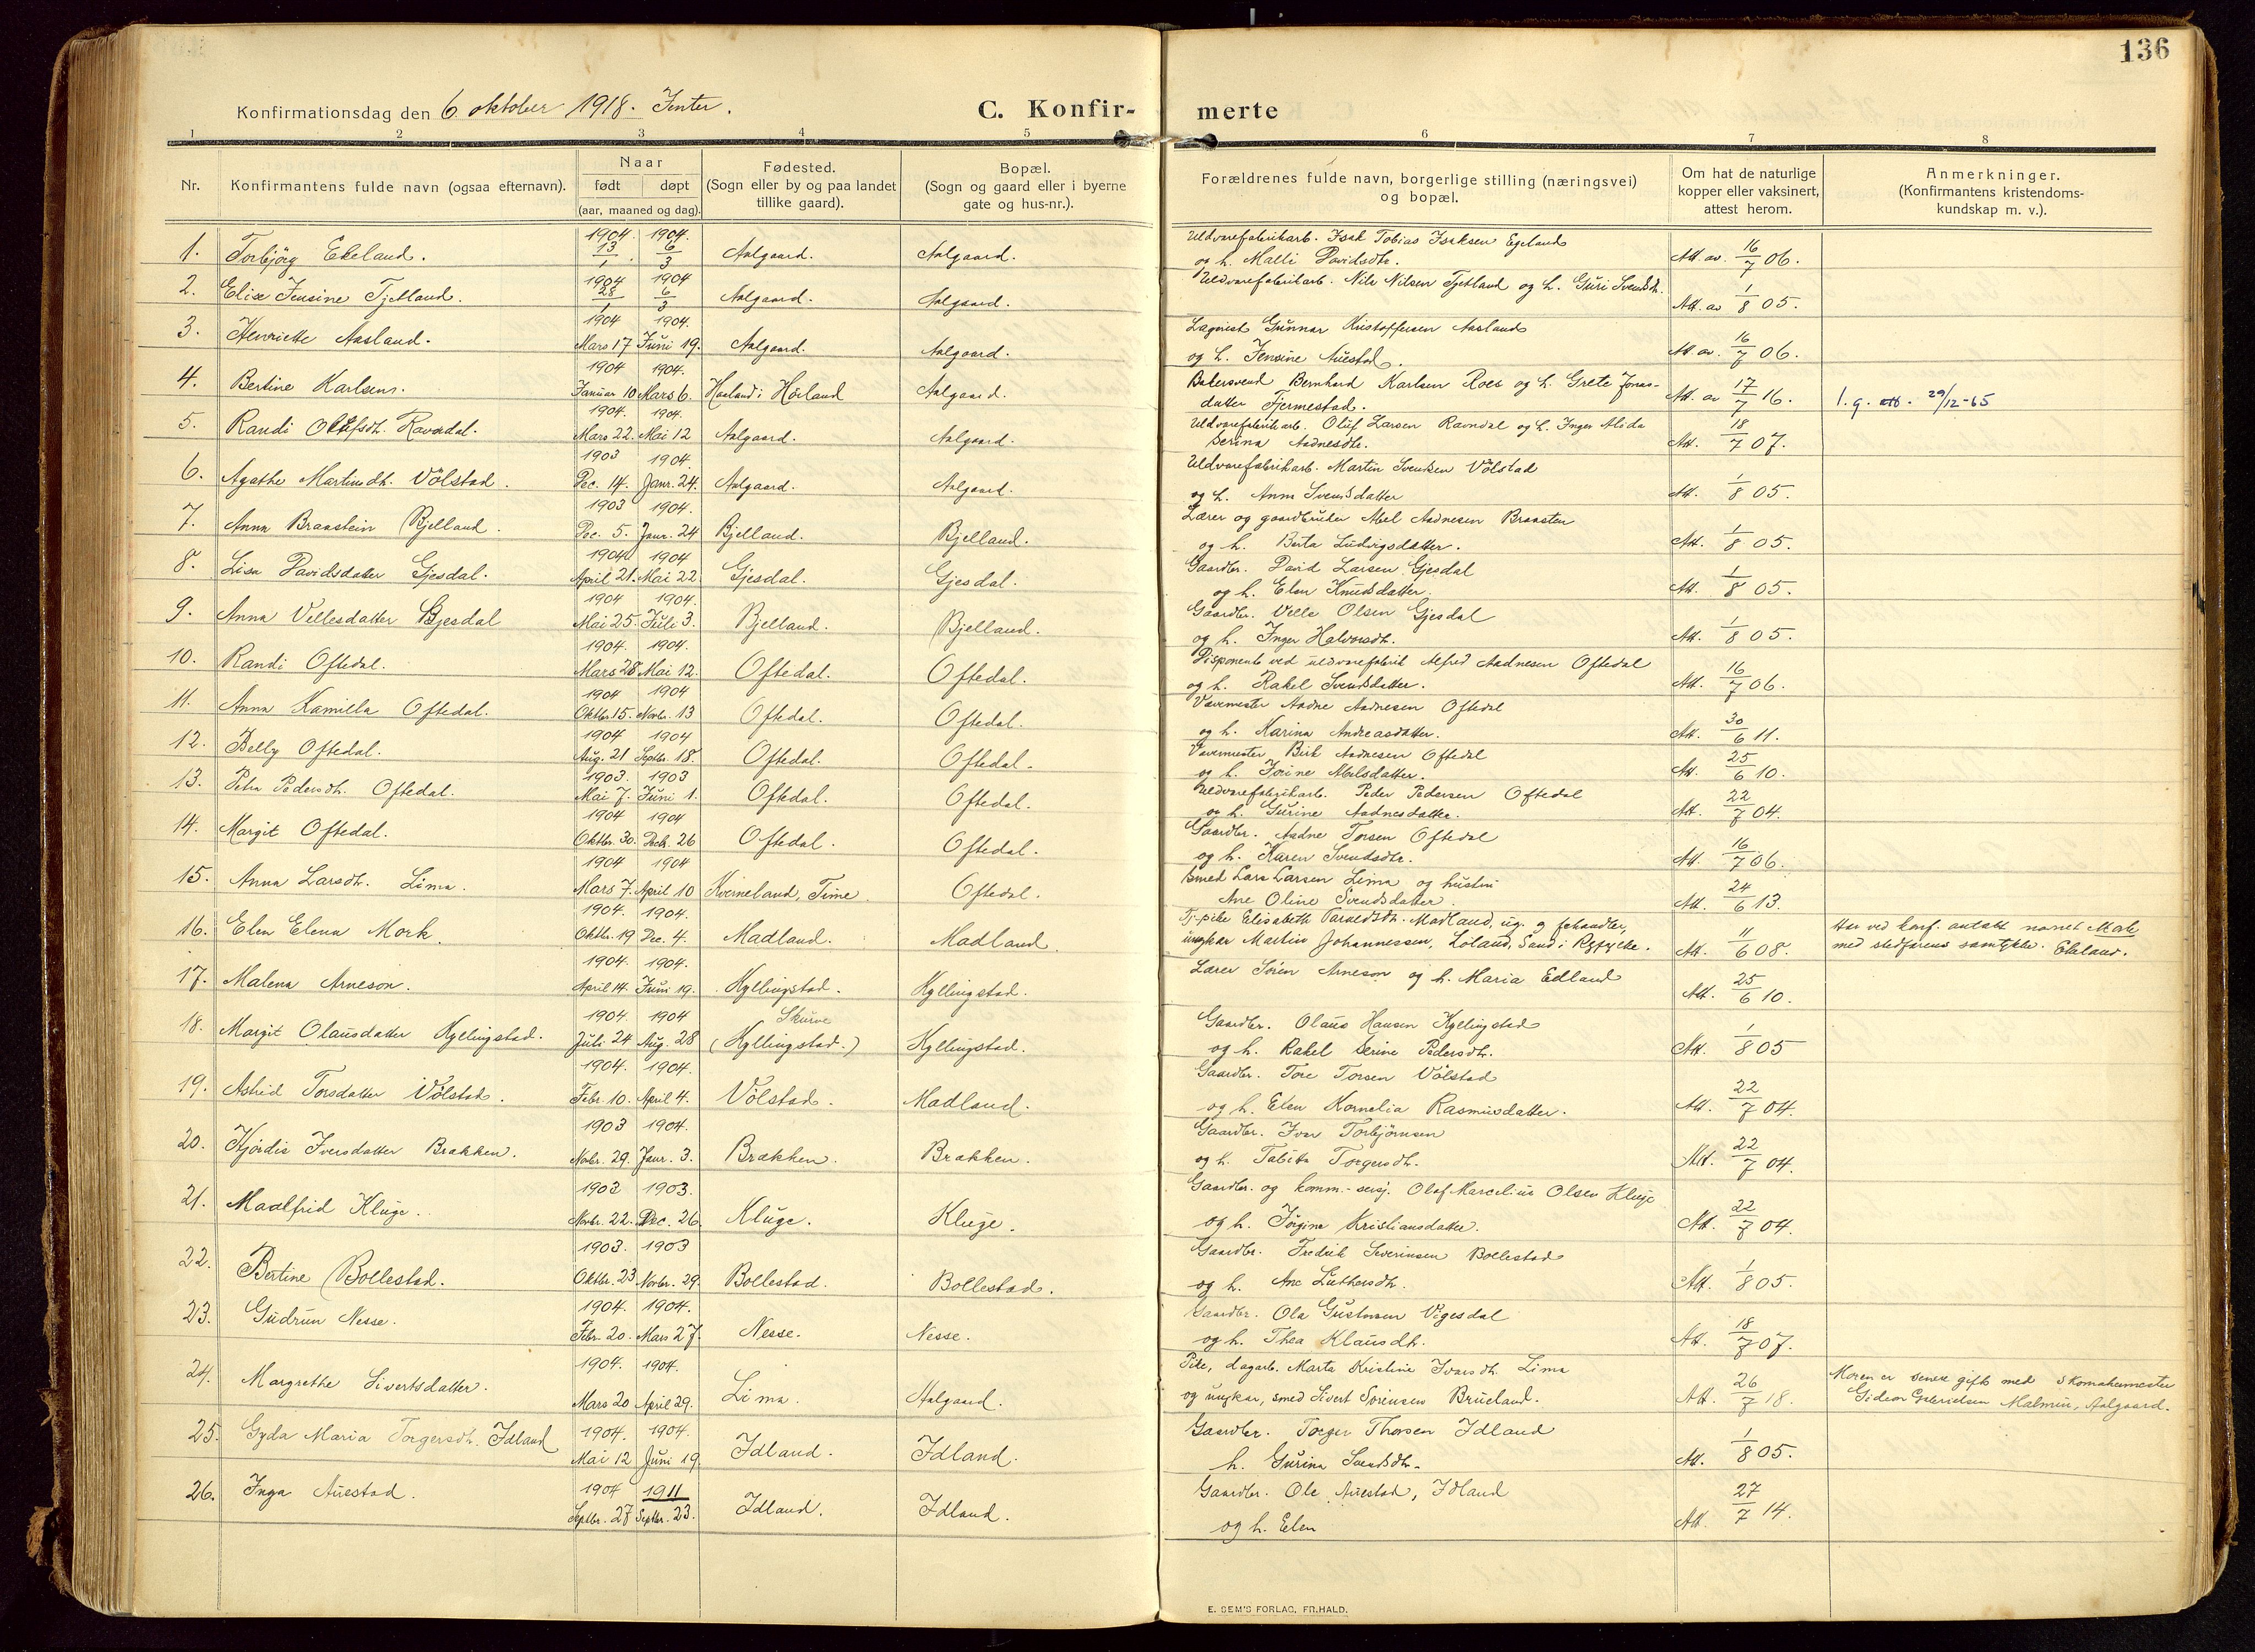 136
Konfirmationsdag den 6 oktober 1918. Jenter.
C. Konfir-
merte
1 2 3 4 5 6 7 8
Nr.
Konfirmantens fulde navn (ogsaa efternavn).
Naar
født døpt
(aar, maaned og dag).
Fødested.
(Sogn eller by og paa landet
tillike gaard).
Bopæl.
(Sogn og gaard eller i byerne
gate og hus-nr.).
Forældrenes fulde navn, borgerlige stilling (næringsvei)
og bopæl.
Om hat de naturlige
kopper eller vaksinert,
attest herom.
Anmerkninger.
(Konfirmantens kristendoms-
kundskap m. v.).
1904. 1904. Uldvarefabrikarb. Isak Tobias Isaksen Egeland
1. Torbjörg Ekeland. 13/1 6/3 Aalgaard. Aalgaard. og h. Malli Davidsdtr. Att. av 16/7 06.
1904 1904 Uldvarefabrikarb. Nils Nilsen Tjetland og h. Guri Svendsdt.
2. Elise Jensine Tjetland. 28/1 6/3 Aalgaard. Aalgaard. Att. av 1/8 05.
1904 1904. Gunnar Kristoffersen Aasland
3. Henriette Aasland. Mars 17 Juni 19. Aalgaard. Aalgaard. og h. Jensine Auestad. Att. av. 16/7 06.
1904 1904. Bakersvend Bernhard Karlsen Roes og h. Grete Jonas-
4. Bertine Karlsen. Januar 10 Mars 6. Haaland i Höiland Aalgaard. datter Fjermestad. Att. av 17/7 16. 29/12-65
1904. 1904. Uldvarefabrikarb. Oluf Larsen Ravndal og h. Inger Alida
5. Randi Olufsdh. Ravndal. Mars 22. Mai 12 Aalgaard. Aalgaard. Serina Aadnesdtr. Att. 18/7 07.
1903 1904. Uldvarefabrikarb. Martin Svendsen Völstad
6. Agathe Martinsdh. Völstad. Dec. 14. Janr. 24. Aalgaard. Aalgaard. og h. Anna Svendsdatter Att. 1/8 05.
1903 1904. Lærer og gaardbruker Abel Aadnesen Braasten
7. Anna Braastein Bjelland. Dec. 5. Janr. 24 Bjelland. Bjelland. og h. Berta Ludvigsdatter. Att. 1/8 05.
1904 1904 Gaardbr. David Larsen Gjesdal
8. Lisa Davidsdatter Gjesdal. April 21. Mai 22 Gjesdal. Gjesdal. og h. Elen Knudsdatter. Att. 1/8 05.
1904 1904. Gaardbr. Velle Olsen Gjesdal
9. Anna Vellesdatter Gjesdal Mai 25. Juli 3. Bjelland. Bjelland. og h. Inger Halvorsdtr. Att. 1/8 05.
1904. 1904. Disponent ved uldvarefabrik Alfred Aadnesen Oftedal
10. Randi Oftedal. Mars 28 Mai 12. Oftedal. Oftedal. og h. Rakel Svendsdatter. Att. 16/7 06.
1904 1904 Vævemester Aadne Aadnesen Oftedal
11. Anna Kamilla Oftedal. Oktbr. 15. Novbr. 13 Oftedal. Oftedal. og h. Karina Andreasdatter. Att. 30/6 11.
1904 1904 Vævemester Berk Aadnesen Oftedal
12. Belly Oftedal. Aug. 21 Septbr. 18. Oftedal. Oftedal. og h. Jorine Abelsdatter. Att. 25/6 10.
1903. 1903 Uldvarefabrikarb. Peder Pedersen Oftedal
13. Petra Pedersdh. Oftedal. Mai 7. Juni 1. Oftedal. Oftedal. og h. Gurine Aadnesdatter. Att. 22/7 04.
1904 1904 Gaardbr. Aadne Torsen Oftedal
14. Margit Oftedal. Oktbr. 30. Decb. 26 Oftedal. Oftedal. og h. Karen Svendsdtr. Att. 16/7 06.
1904 1904 Smed Lars Larsen Lima og hustru
15. Anna Larsdh. Lima. Mars 7. April 10 Kverneland, Time. Oftedal. Ane Oline Svendsdatter. Att. 24/6 13.
1904. 1904. Tj-pike Elisabeth Taraldsdh. Madland, ug. og fehandler, Har ved konf. antatt navnet Mork
16. Elen Elena Mork. Oktbr. 19 Dec. 4. Madland. Madland. ungkar Martin Johannessen, Loland, Sand i Ryfylke. Att. 11/6 08. med stedfarens samtykke. Ekeland.
1904. 1904. Lærer Sören Arneson og h. Maria Edland
17. Malena Arneson. April 14. Juni 19. Kyllingstad. Kyllingstad. Att. 25/6 10.
1904. 1904 Skurve Gaardbr. Olaus Hansen Kyllingstad
18. Margit Olausdatter Kyllingstad. Juli 24 Aug. 28 (Kyllingstad.) Kyllingstad. og h. Rakel Serine Pedersdh. Att. 1/8 05
1904. 1904. Gaardbr. Tore Torsen Völstad
19. Astrid Torsdatter Völstad. Febr. 10. April 4. Völstad. Madland. og h. Elen Kornelia Rasmusdatter. Att. 22/7 04.
1903 1904. Gaardbr. Ivar Torbjörnsen
20. Hjördis Iversdatter Brækken. Novbr. 29. Janr. 3. Brækken. Brækken. og h. Tabita Torgersdh. Att. 22/7 04.
1903 1903. Gaardbr. og komm.- Olaf Marcelius Olsen Kluge
21. Maalfrid Kluge. Novbr. 22. Dec. 26. Kluge. Kluge. og h. Jörgine Kristiansdatter. Att. 22/7 04.
1903. 1903 Gaardbr. Fredrik Severinsen Bollestad
22. Bertine Bollestad. Oktbr. 23 Novbr. 29. Bollestad. Bollestad. og h. Ane Luthersdh. Att. 1/8 05.
1904. 1904. Gaardbr. Ola Gustavsen Vigesdal
23. Gudrun Nesse. Febr. 20. Mars 27. Nesse. Nesse. og h. Thea Klausdh. Att. 18/7 07.
1904. 1904. Pike, dagarb. Marta Kristine Ivarsdh. Lima Moren er senere gift med skomakermester
24. Margrethe Sivertsdatter. Mars 20 April 29. Lima. Aalgaard. og ungkar, smed Sivert Sörensen Brueland. Att. 26/7 18. Gideon Gabrielsen Malmin, Aalgaard.
1904. 1904. Gaardbr. Torger Thorsen Idland
25. Gyda Maria Torgersdh. Idland Mai 12 Juni 19. Idland. Idland. h. Gurina Svendsdtr. Att. 1/8 05.
1904 1911 Gaardbr. Ole Auestad, Idland
26. Inga Auestad. Septbr. 27 Septbr. 23. Idland. Idland. og h. Elen Att. 27/7 14.
E. SEM'S FORLAG, FR.HALD.